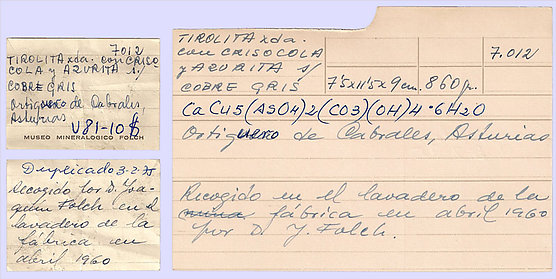 7012
TIROLITA xda. con CRISO
COLA y AZURITA s/
COBRE GRIS
Ortiguero de Cabrales,
Asturias
V81-10$
MUSEO MINERALOGICO FOLCH
Duplicado 3-2-75
Recogido por D. Joa-
quin Folch en el
lavadero de la
fábrica en
abril 1960
TIROLITA xda.
con CRISOCOLA
y AZURITA s/
COBRE GRIS
7'5x11'5x9 cm. 860 gr.
7.012
CaCu5(ASO4)2(CO3)(OH)4·6H2O
Ortiguero de Cabrales, Asturias
Recogido en el lavadero de la
mina fábrica en abril 1960
por D. J. Folch.